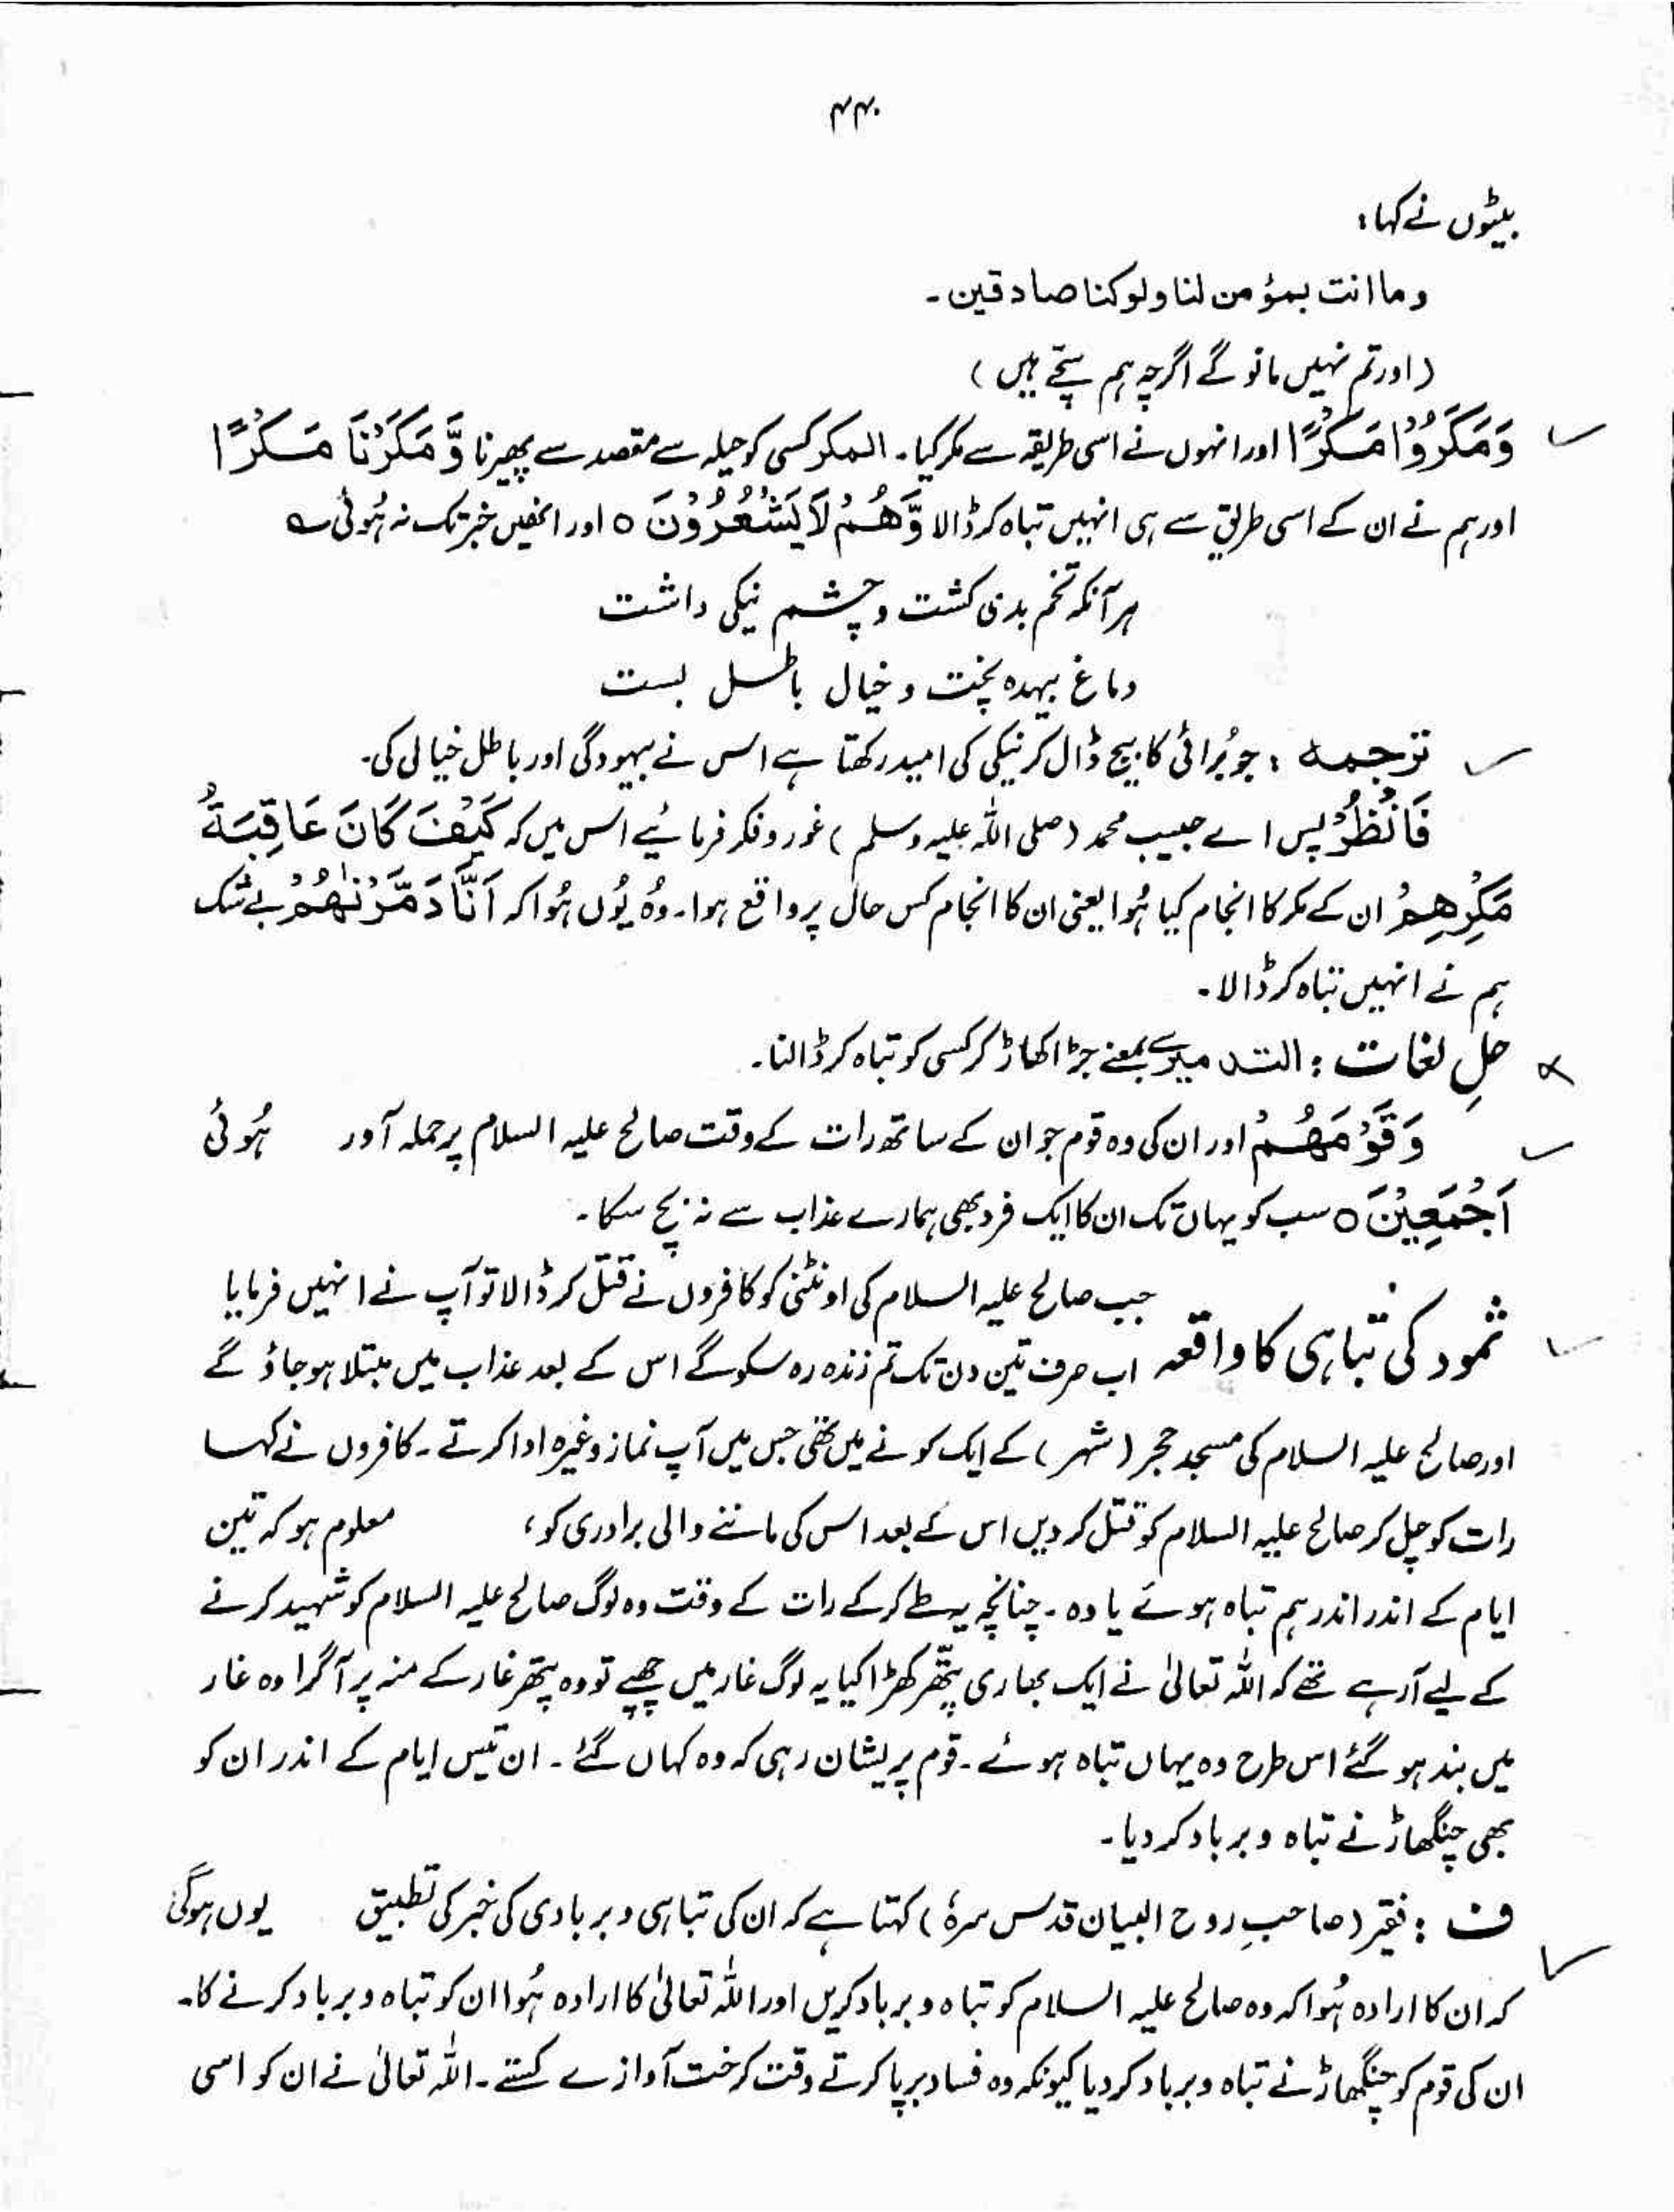 ۴۴۰
بیٹوں نے کہا:
وما انت بمؤمن لنا ولو کنا صادقین۔
(اور تم نہیں مانو گے اگرچہ ہم سچے ہیں)
وَمَكَرُوْا مَكْرًا اور انہوں نے اسی طریقہ سے مکر کیا۔ المکر کسی کو حیلہ سے مقصد سے پھیرنا وَّ مَكَرْنَا مَكْرًا
اور ہم نے ان کے اسی طریق سے ہی انہیں تباہ کر ڈالا وَّهُمْ لَا يَشْعُرُوْنَ ○ اور انھیں خبر تک نہ ہُوئی ؎
ہر آنکہ تخم بدی کشت و چشم نیکی داشت
دماغ بیہدہ پخت و خیال باطل بست
ترجمہ : جو بُرائی کا بیج ڈال کر نیکی کی امید رکھتا ہے اس نے بیہودگی اور باطل خیالی کی۔
فَانْظُرْ پس اے حبیب محمد (صلی اللہ علیہ وسلم) غور و فکر فرمائیے اس میں کہ كَيْفَ كَانَ عَاقِبَةُ
مَكْرِهِمْ ان کے مکر کا انجام کیا ہُوا یعنی ان کا انجام کس حال پر واقع ہوا۔ وُہ یُوں ہُوا کہ اَنَّا دَمَّرْنٰهُمْ بے شک
ہم نے انہیں تباہ کر ڈالا۔
حلِ لغات : التدمیر بمعنے جڑ اکھاڑ کر کسی کو تباہ کر ڈالنا۔
وَقَوْمَهُمْ اور ان کی وہ قوم جو ان کے ساتھ رات کے وقت صالح علیہ السلام پر حملہ آور ہُوئی
اَجْمَعِيْنَ ○ سب کو یہاں تک ان کا ایک فرد بھی ہمارے عذاب سے نہ بچ سکا۔
ثمود کی تباہی کا واقعہ جب صالح علیہ السلام کی اونٹنی کو کافروں نے قتل کر ڈالا تو آپ نے انہیں فرمایا
اب صرف تین دن تک تم زندہ رہ سکو گے اس کے بعد عذاب میں مبتلا ہو جاؤ گے
اور صالح علیہ السلام کی مسجد حجر (شہر) کے ایک کونے میں تھی جس میں آپ نماز وغیرہ ادا کرتے۔ کافروں نے کہا
رات کو چل کر صالح علیہ السلام کو قتل کر دیں اس کے بعد اس کی ماننے والی برادری کو، معلوم ہو کہ تین
ایام کے اندر اندر ہم تباہ ہوئے یا وہ۔ چنانچہ یہ طے کر کے رات کے وقت وہ لوگ صالح علیہ السلام کو شہید کرنے
کے لیے آ رہے تھے کہ اللہ تعالیٰ نے ایک بھاری پتھر کھڑا کیا یہ لوگ غار میں چھپے تو وہ پتھر غار کے منہ پر آ گرا وہ غار
میں بند ہو گئے اس طرح وہ یہاں تباہ ہوئے۔ قوم پریشان رہی کہ وہ کہاں گئے۔ ان تیس ایام کے اندر ان کو
بھی چنگھاڑ نے تباہ و برباد کر دیا۔
ف : فقیر (صاحبِ روح البیان قدس سرہٗ) کہتا ہے کہ ان کی تباہی و بربادی کی خبر کی تطبیق یوں ہوگی
کہ ان کا ارادہ ہُوا کہ وہ صالح علیہ السلام کو تباہ و برباد کریں اور اللہ تعالیٰ کا ارادہ ہُوا ان کو تباہ و برباد کرنے کا۔
ان کی قوم کو چنگھاڑ نے تباہ و برباد کر دیا کیونکہ وہ فساد برپا کرتے وقت کرخت آوازے کستے۔ اللہ تعالیٰ نے ان کو اسی